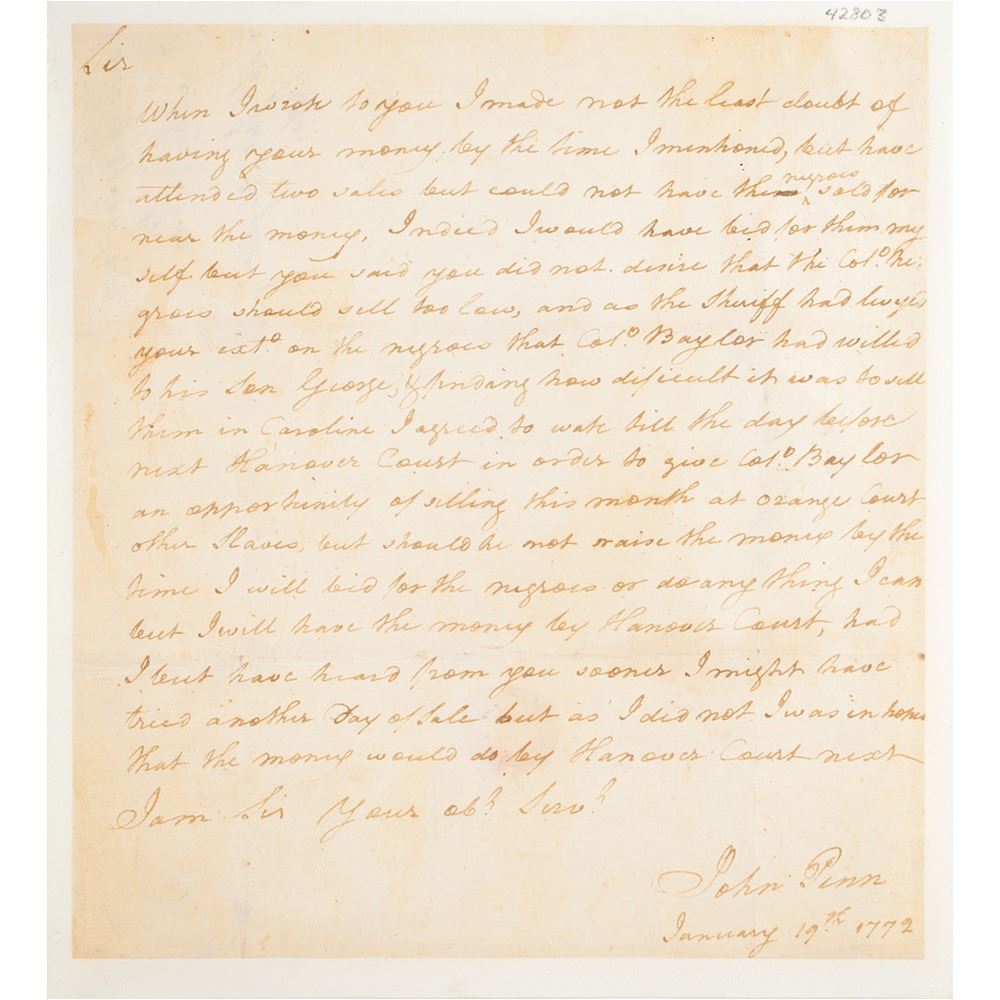 42803
Sir
When I wrote to you I made not the least doubt of
having your money by the time I mentioned, but have
attended two sales but could not have negroes sold for
near the money, Indeed I would have bid for them my
self but you said you did not desire that the Colo. Ne:
groes should sell too low, and as the Sheriff had levyed
your exto. on the negroes that Colo. Baylor had willed
to his Son George, & finding how dificult it was to sell
them in Caroline I agreed to wate till the day before
next Hanover Court in order to give Colo. Baylor
an opportunity of selling this month at Orange Court
other Slaves, but should he not raise the money by the
time I will bid for the negroes or do any thing I can
but I will have the money by Hanover Court, had
I but have heard from you sooner I might have
tried another Day of Sale but as I did not I was in hopes
that the money would do by Hanover Court next
I am Sir Your obt. Servt.
John Penn
January 19th 1772